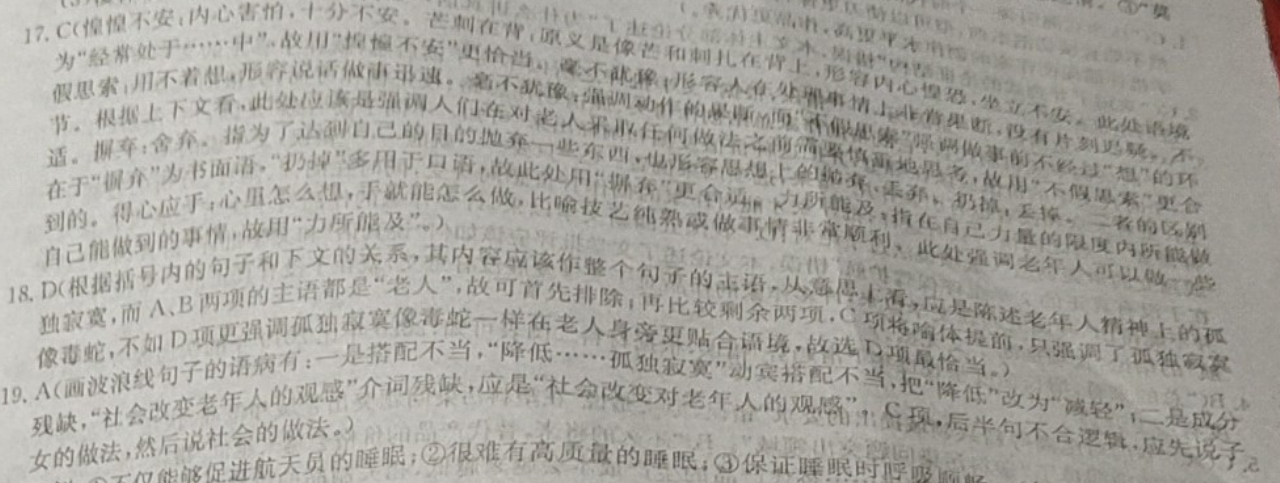 17. C(惶惶不安:内心害怕,十分不安。芒刺在背:原义是像芒和刺扎在背上,形容内心惶恐,坐立不安。此处语境
为“经常处于……中”,故用“惶惶不安”更恰当。毫不犹豫:形容人在处理事情上非常果断,没有片刻迟疑。不
假思索:用不着想,形容说话做事迅速。毫不犹豫,强调动作的果断,而“不假思索”强调做事前不经过“想”的环
节。根据上下文看,此处应该是强调人们在对老人采取任何做法之前需要慎重地思考,故用“不假思索”更合
适。摒弃:舍弃。指为了达到自己的目的抛弃一些东西,也形容思想上的抛弃、丢弃。扔掉:丢掉。二者的区别
在于“摒弃”为书面语,“扔掉”多用于口语,故此处用“摒弃”更合适。力所能及:指在自己力量的限度内所能做
到的。得心应手:心里怎么想,手就能怎么做,比喻技艺纯熟或做事情非常顺利。此处强调老年人可以做一些
自己能做到的事情,故用“力所能及”。)
18. D(根据括号内的句子和下文的关系,其内容应该作整个句子的主语,从意思上看,应是陈述老年人精神上的孤
独寂寞,而 A、B 两项的主语都是“老人”,故可首先排除;再比较剩余两项,C 项将喻体提前,只强调了孤独寂寞
像毒蛇,不如 D 项更强调孤独寂寞像毒蛇一样在老人身旁更贴合语境,故选 D 项最恰当。)
19. A(画波浪线句子的语病有:一是搭配不当,“降低……孤独寂寞”动宾搭配不当,把“降低”改为“减轻”;二是成分
残缺,“社会改变老年人的观感”介词残缺,应是“社会改变对老年人的观感”。C 项,后半句不合逻辑,应先说子
女的做法,然后说社会的做法。)
不仅能够促进航天员的睡眠;②很难有高质量的睡眠;③保证睡眠时呼吸顺畅